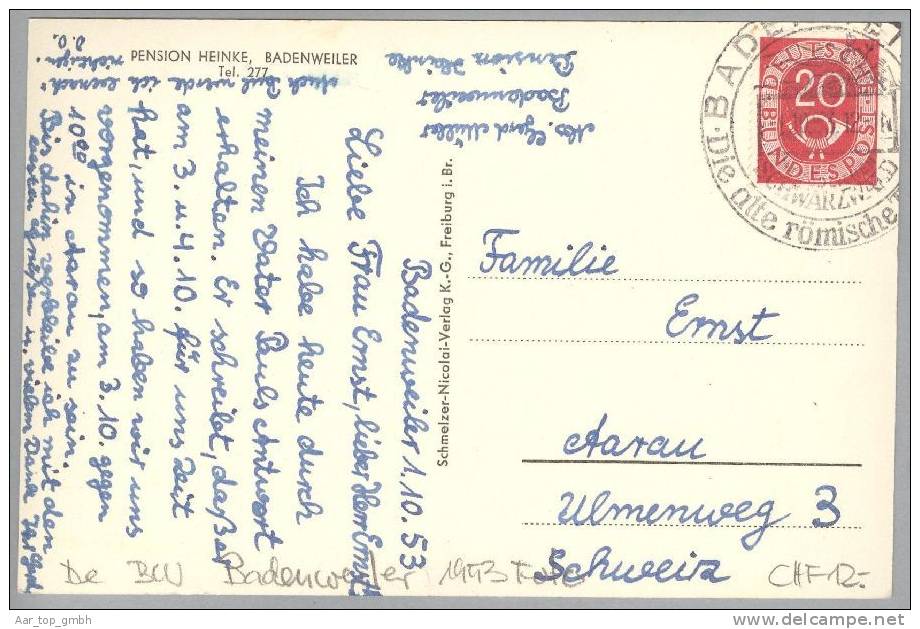 PENSION HEINKE, BADENWEILER
Tel. 277
Abs. Gerd Müller
Badenweiler
Pension Heinke
Badenweiler 1.10.53
Liebe Frau Ernst, lieber Herr Ernst!
Ich habe heute durch
meinen Vater Pauls Antwort
erhalten. Er schreibt, daß er
am 3. u. 4.10. für uns Zeit
hat, und so haben wir uns
vorgenommen, am 3.10. gegen
10⁰⁰ in Aarau zu sein.
Bis dahin verbleibe ich mit den
besten Grüßen u. vielem Dank Ihr Gerd
Auch Paul werde ich
demnach
d. O.
Schmelzer-Nicolai-Verlag K.-G., Freiburg i. Br.
BADENWEILER
SCHWARZWALD
Die alte römische
DEUTSCHE BUNDESPOST
20
Familie
Ernst
Aarau
Ulmenweg 3
Schweiz
De BW Badenweiler 1953 Foto
CHF 12.-
Aar_top_gmbh
delcampe.net